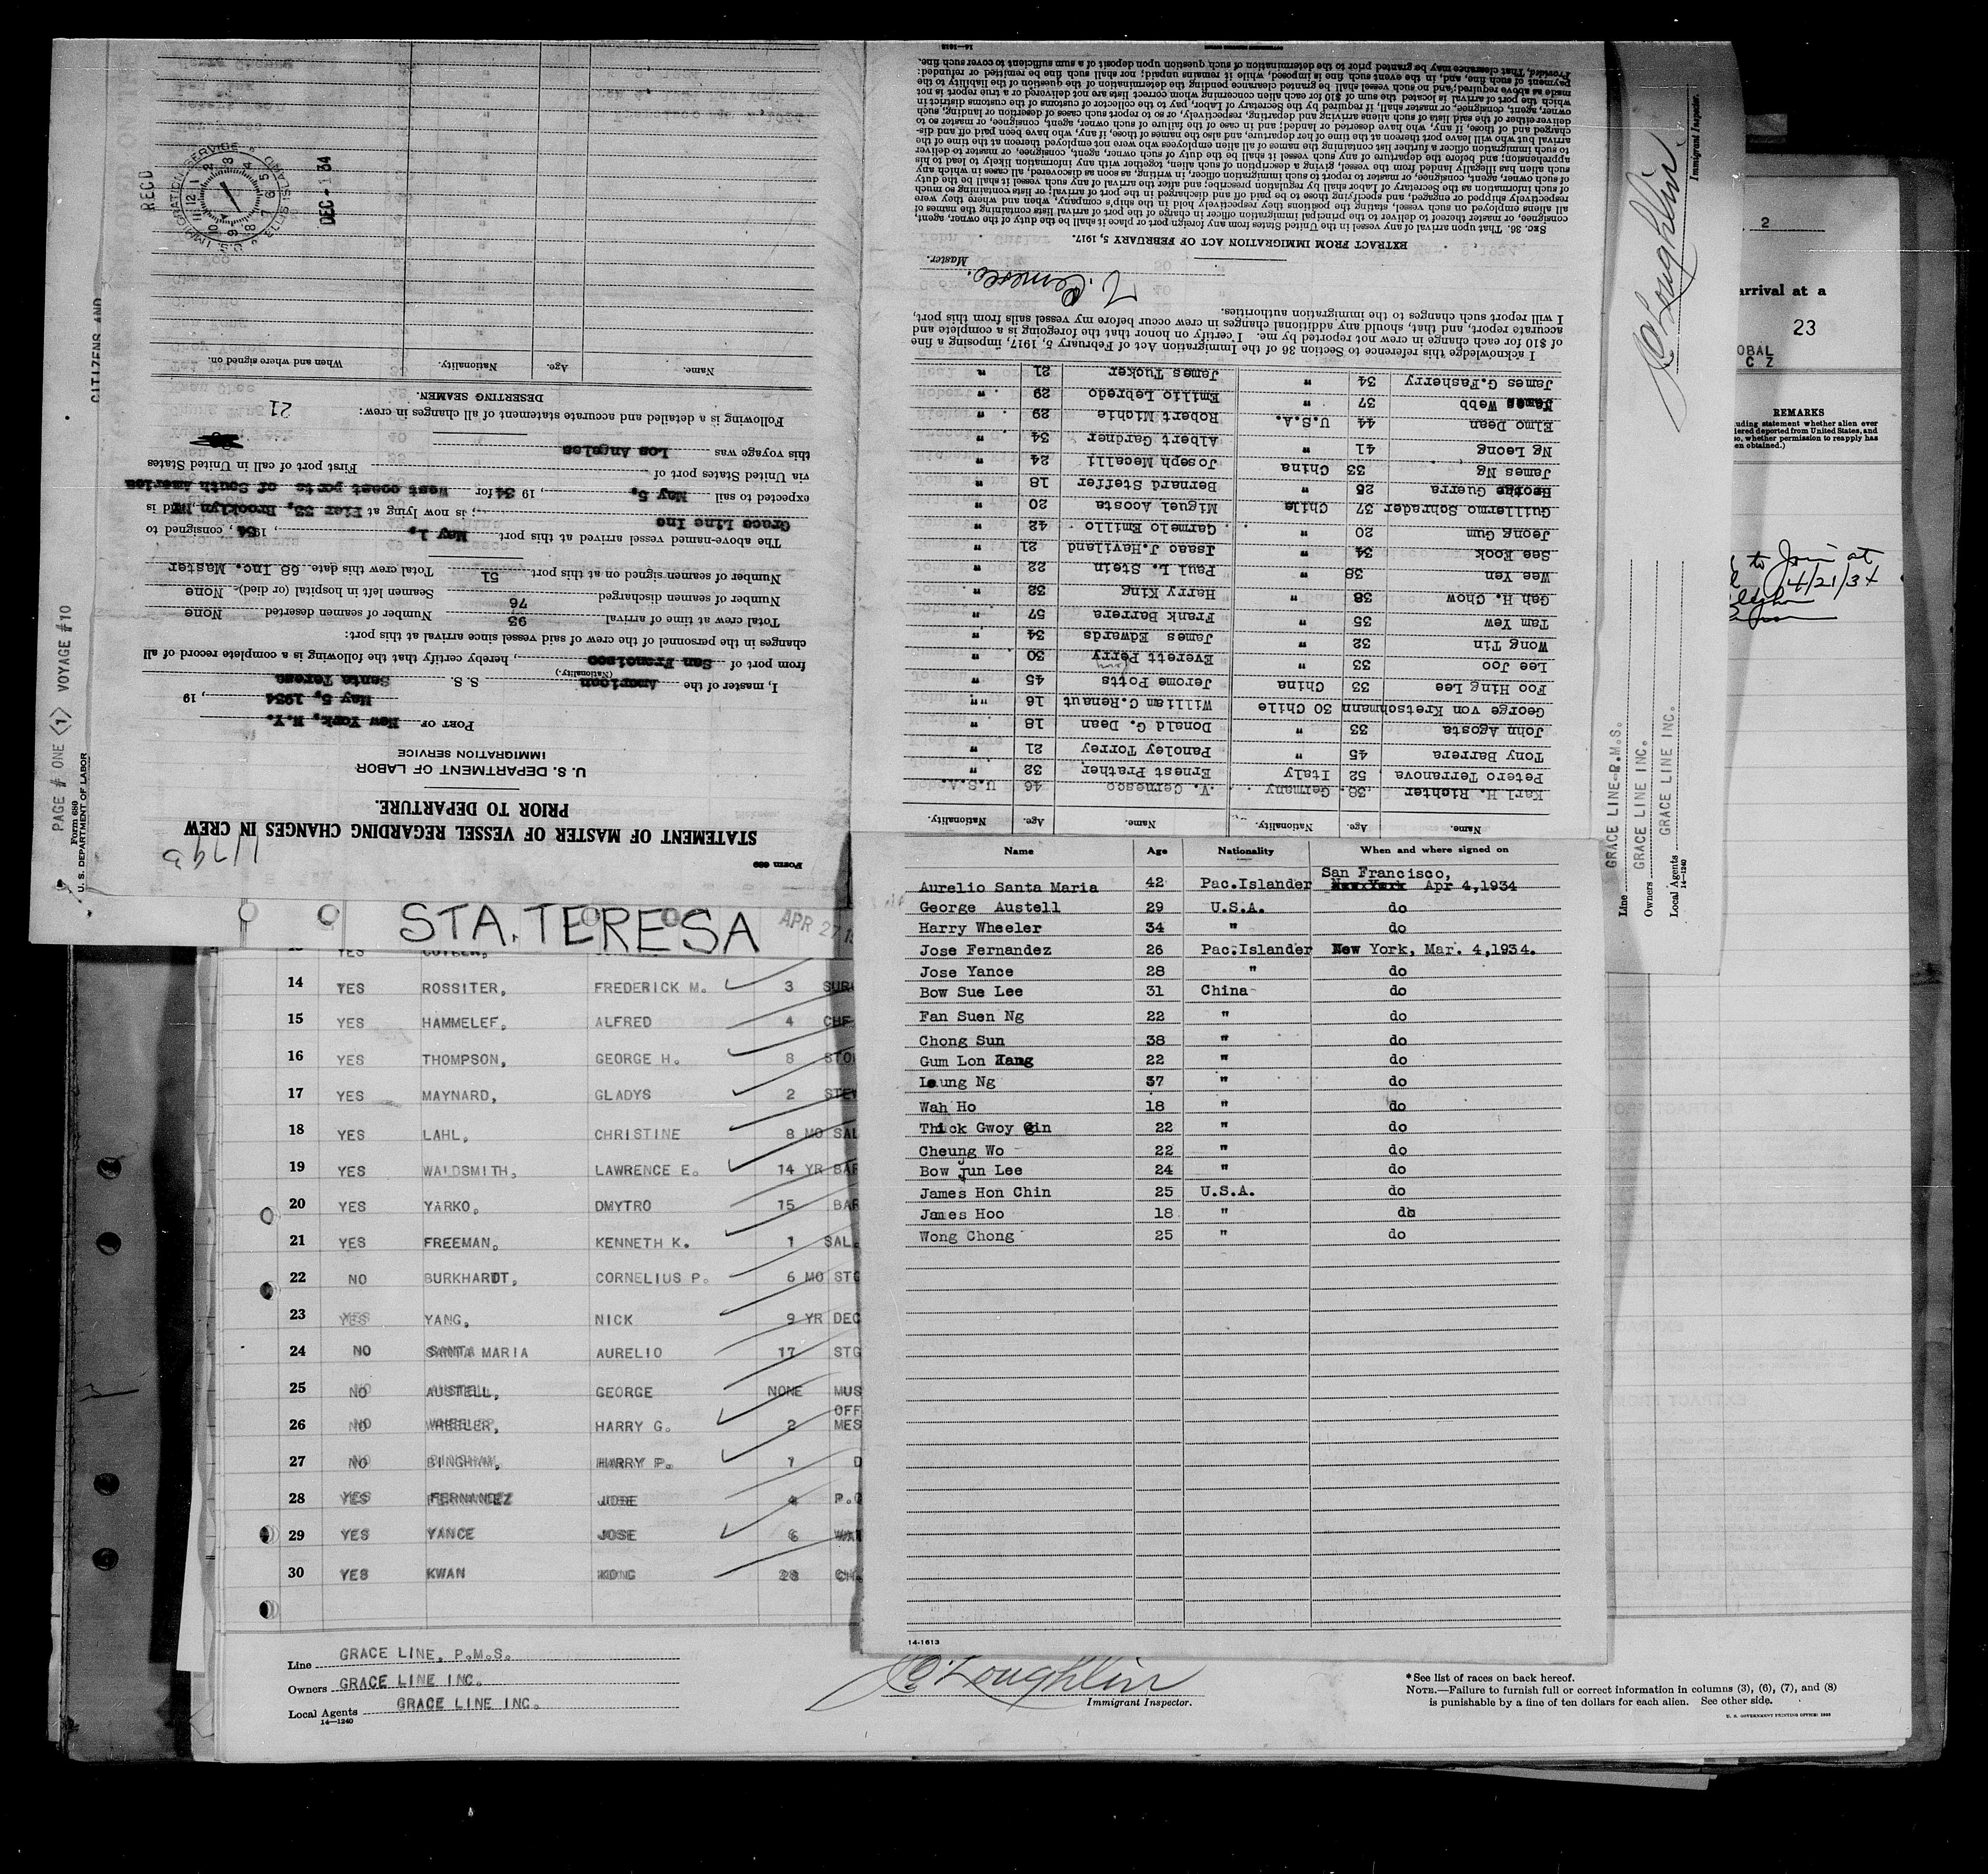 STATEMENT OF MASTER REGARDING CHANGES IN CREW
PRIOR TO DEPARTURE.
U. S. DEPARTMENT OF LABOR
IMMIGRATION SERVICE
PORT OF New York, N.Y.
May 5, 1934, 19
I, master of the American S. S. Santa Teresa
(Nationality)
from port of San Francisco, hereby certify that the following is a complete record of all
changes in the personnel of the crew of said vessel since arrival at this port:
Total crew at time of arrival 93 Number of seamen deserted None
Number of seamen discharged 76 Seamen left in hospital (or died) None
Number of seamen signed on at this port 51 Total crew this date 68 Inc. Master
The above-named vessel arrived at this port May 1, 1934, consigned to
Grace Line Inc; is now lying at Pier 33, Brooklyn, and is
expected to sail May 5, 19 34 for West coast ports of South America
via United States port of First port of call in United States
this voyage was Los Angeles
Following is a detailed and accurate statement of all changes in crew: 21
DESERTING SEAMEN.
Name. Age. Nationality. When and where signed on.
REC'D
U.S. IMMIGRATION SERVICE
ELLIS ISLAND
DEC - 1 34
CITIZENS AND
PAGE # ONE (1) VOYAGE #10
Form 680
U. S. DEPARTMENT OF LABOR
Name. Age. Nationality. Name. Age. Nationality.
Karl H. Richter 38 Germany V. Cernesco 46 U.S.A.
Petero Terranova 52 Italy Ernest Prather 32 "
Tony Barrera 45 " Pansley Torrey 21 "
John Agosta 33 " Donald G. Dean 18 "
George von Kretschmann 30 Chile Willian C.Renaut 16 "
Foo Hing Lee 33 China Jerome Potts 45 "
Lee Joo 33 " Everett Perry 30 "
Wong Tin 32 " James Edwards 34 "
Tam Yew 35 " Frank Barrera 57 "
Gah H. Chow 38 " Harry King 32 "
Wee Yen 38 " Paul L. Stein 22 "
See Kook 34 " Issac J.Haviland 21 "
Jeong Gum 20 " Carmelo Emilio 42 "
Guillermo Schrader 37 Chile Miguel Acosta 20 "
George Guerra 25 " Bernard Steffer 18 "
James Ng 33 China Joseph Mecalli 24 "
Ng Leong 41 " Albert Gardner 34 "
Elmo Dean 44 U.S.A. Robert Michie 29 "
James Webb 37 " Emilio Lebredo 29 "
James G.Fasherry 34 " James Tucker 21 "
I acknowledge this reference to Section 36 of the Immigration Act of February 5, 1917, imposing a fine
of $10 for each change in crew not reported by me. I certify on honor that the foregoing is a complete and
accurate report, and that, should any additional changes in crew occur before my vessel sails from this port,
I will report such changes to the immigration authorities.
V. Cernesco.
Master.
EXTRACT FROM IMMIGRATION ACT OF FEBRUARY 5, 1917.
SEC. 36. That upon arrival of any vessel in the United States from any foreign port or place it shall be the duty of the owner, agent,
consignee, or master thereof to deliver to the principal immigration officer in charge of the port of arrival lists containing the names of
all aliens employed on such vessel, stating the positions they respectively hold in the ship's company, when and where they were
respectively shipped or engaged, and specifying those to be paid off and discharged in the port of arrival; or lists containing so much
of such information as the Secretary of Labor shall by regulation prescribe; and after the arrival of any such vessel it shall be the duty
of such owner, agent, consignee, or master to report to such immigration officer, in writing, as soon as discovered, all cases in which any
such alien has illegally landed from the vessel, giving a description of such alien, together with any information likely to lead to his
apprehension; and before the departure of any such vessel it shall be the duty of such owner, agent, consignee, or master to deliver
to such immigration officer a further list containing the names of all alien employees who were not employed thereon at the time of the
arrival but who will leave port thereon at the time of her departure, and also the names of those, if any, who have been paid off and dis-
charged and of those, if any, who have deserted or landed; and in case of the failure of such owner, agent, consignee, or master so to
deliver either of the said lists of such aliens arriving and departing, respectively, or so to report such cases of desertion or landing, such
owner, agent, consignee, or master shall, if required by the Secretary of Labor, pay to the collector of customs of the customs district in
which the port of arrival is located the sum of $10 for each alien concerning whom correct lists are not delivered or a true report is not
made as above required; and no such vessel shall be granted clearance pending the determination of the question of the liability to the
payment of such fine, and, in the event such fine is imposed, while it remains unpaid; nor shall such fine be remitted or refunded:
Provided, That clearance may be granted prior to the determination of such question upon deposit of a sum sufficient to cover such fine.
Name Age Nationality When and where signed on
San Francisco,
Aurelio Santa Maria 42 Pac.Islander New York Apr 4,1934
George Austell 29 U.S.A. do
Harry Wheeler 34 " do
Jose Fernandez 26 Pac.Islander New York, Mar. 4,1934.
Jose Yance 28 " do
Bow Sue Lee 31 China do
Fan Suen Ng 22 " do
Chong Sun 38 " do
Gum Lon Hang 22 " do
Leung Ng 37 " do
Wah Ho 18 " do
Thick Gwoy Gin 22 " do
Cheung Wo 22 " do
Bow Jun Lee 24 " do
James Hon Chin 25 U.S.A. do
James Hoo 18 " do
Wong Chong 25 " do
14-1613
STA. TERESA
APR 27
14 YES ROSSITER, FREDERICK M. 3 SUR
15 YES HAMMELEF, ALFRED 4 CHF
16 YES THOMPSON, GEORGE H. 8 STO
17 YES MAYNARD, GLADYS 2 STEW
18 YES LAHL, CHRISTINE 8 MO SAL
19 YES WALDSMITH, LAWRENCE E. 14 YR BAR
20 YES YARKO, DMYTRO 15 BAR
21 YES FREEMAN, KENNETH K. 1 SAL.
22 NO BURKHARDT, CORNELIUS P. 6 MO STG
23 YES YANG, NICK 9 YR DEC
24 NO SANTA MARIA AURELIO 17 STG
25 NO AUSTELL, GEORGE NONE MUS
OFF
26 NO WHEELER, HARRY G. 2 MES
27 NO BINGHAM, HARRY P. 1 D
28 YES FERNANDEZ JOSE 4 P.O
29 YES YANCE JOSE 6 WAI
30 YES KWAN KONG 28 CH.
Line GRACE LINE, P.M.S.
Owners GRACE LINE INC.
Local Agents GRACE LINE INC.
14—1240
O'Loughlin
Immigrant Inspector.
*See list of races on back hereof.
NOTE.—Failure to furnish full or correct information in columns (3), (6), (7), and (8)
is punishable by a fine of ten dollars for each alien. See other side.
U. S. GOVERNMENT PRINTING OFFICE: 1933
O'Loughlin
Immigrant Inspector.
Line GRACE LINE-P.M.S.
Owners GRACE LINE INC.
Local Agents GRACE LINE INC.
14—1240
2
arrival at a
23
OBAL
C Z
REMARKS
uding statement whether alien ever
dered deported from United States, and
so, whether permission to reapply has
en obtained.)
to Join at
4/21/34